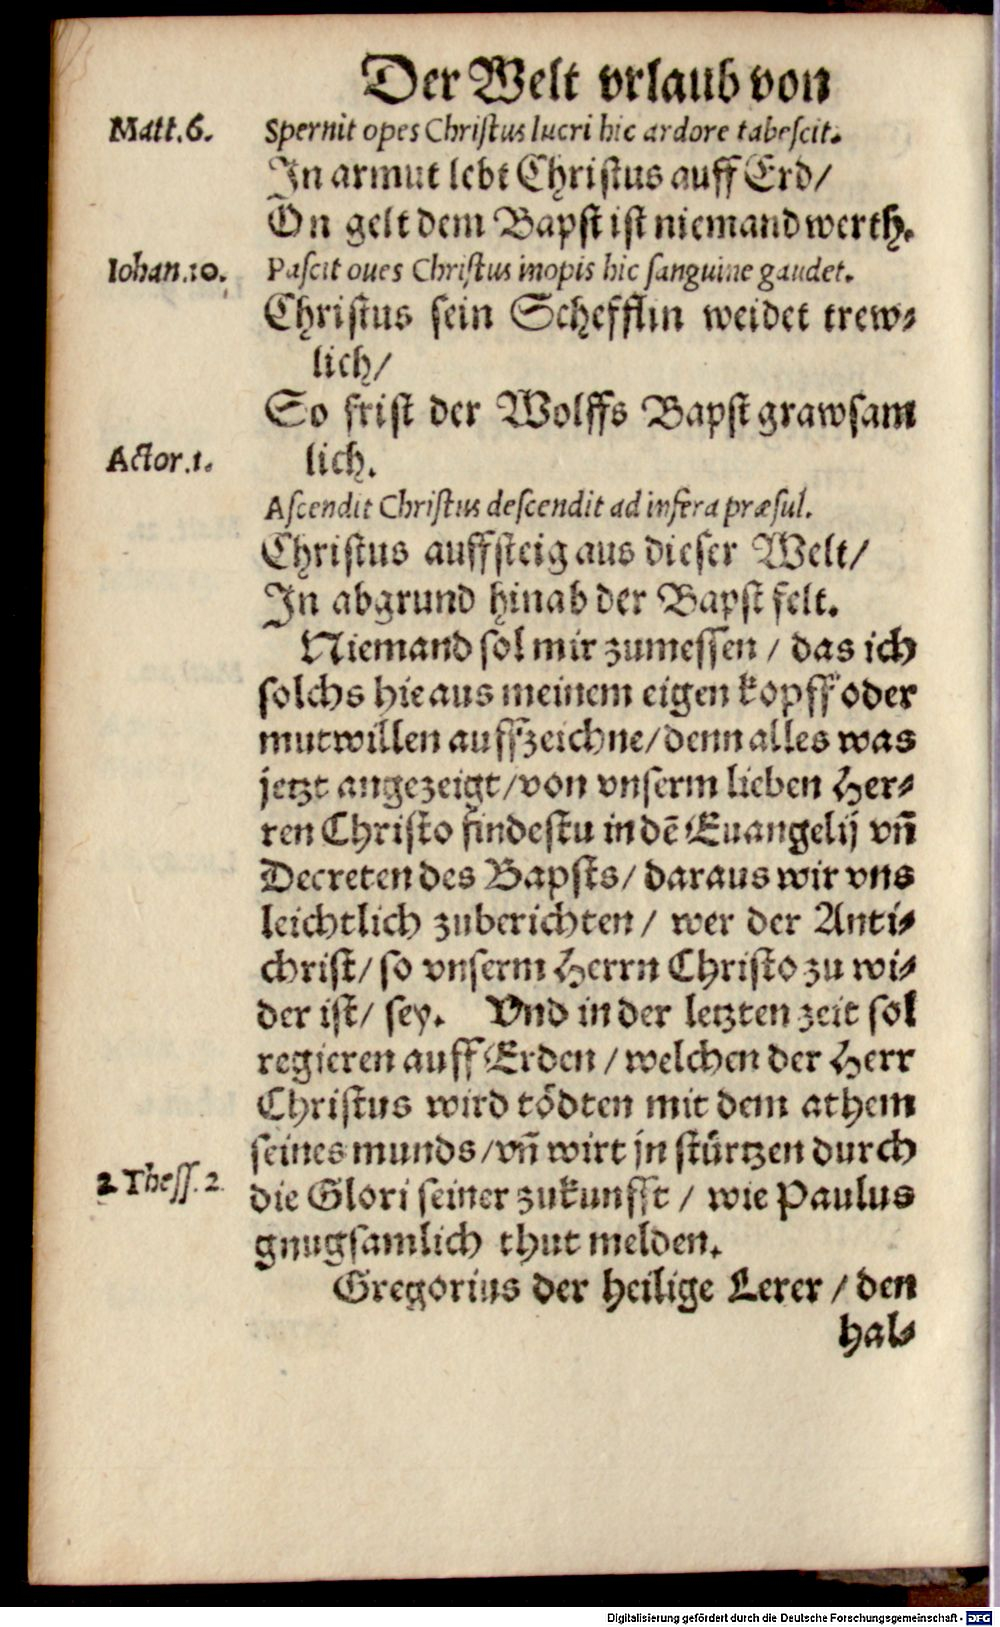 Der Welt vrlaub von
Matt.6. Spernit opes Chriſtus lucri hic ardore tabeſcit.
In armut lebt Chriſtus auff Erd/
On gelt dem Bapſt iſt niemand werth.
Iohan.10. Paſcit oues Chriſtus inopis hic ſanguine gaudet.
Chriſtus ſein Schefflin weidet trew⸗
lich/
So friſt der Wolffs Bapſt grawſam
Actor.1. lich.
Aſcendit Chriſtus deſcendit ad infera præſul.
Chriſtus auffſteig aus dieſer Welt/
In abgrund hinab der Bapſt felt.
Niemand ſol mir zumeſſen / das ich
ſolchs hie aus meinem eigen kopff oder
mutwillen auffzeichne/denn alles was
jetzt angezeigt/von vnſerm lieben Her⸗
ren Chriſto findeſtu in dē Euangelij vñ
Decreten des Bapſts/ daraus wir vns
leichtlich zuberichten/ wer der Anti⸗
chriſt/ ſo vnſerm Herrn Chriſto zu wi⸗
der iſt/ ſey. Vnd in der letzten zeit ſol
regieren auff Erden / welchen der Herr
Chriſtus wird tödten mit dem athem
ſeines munds/vñ wirt jn ſtürtzen durch
2 Theſſ. 2 die Glori ſeiner zukunfft / wie Paulus
gnugſamlich thut melden.
Gregorius der heilige Lerer / den
hal⸗
Digitalisierung gefördert durch die Deutsche Forschungsgemeinschaft - DFG